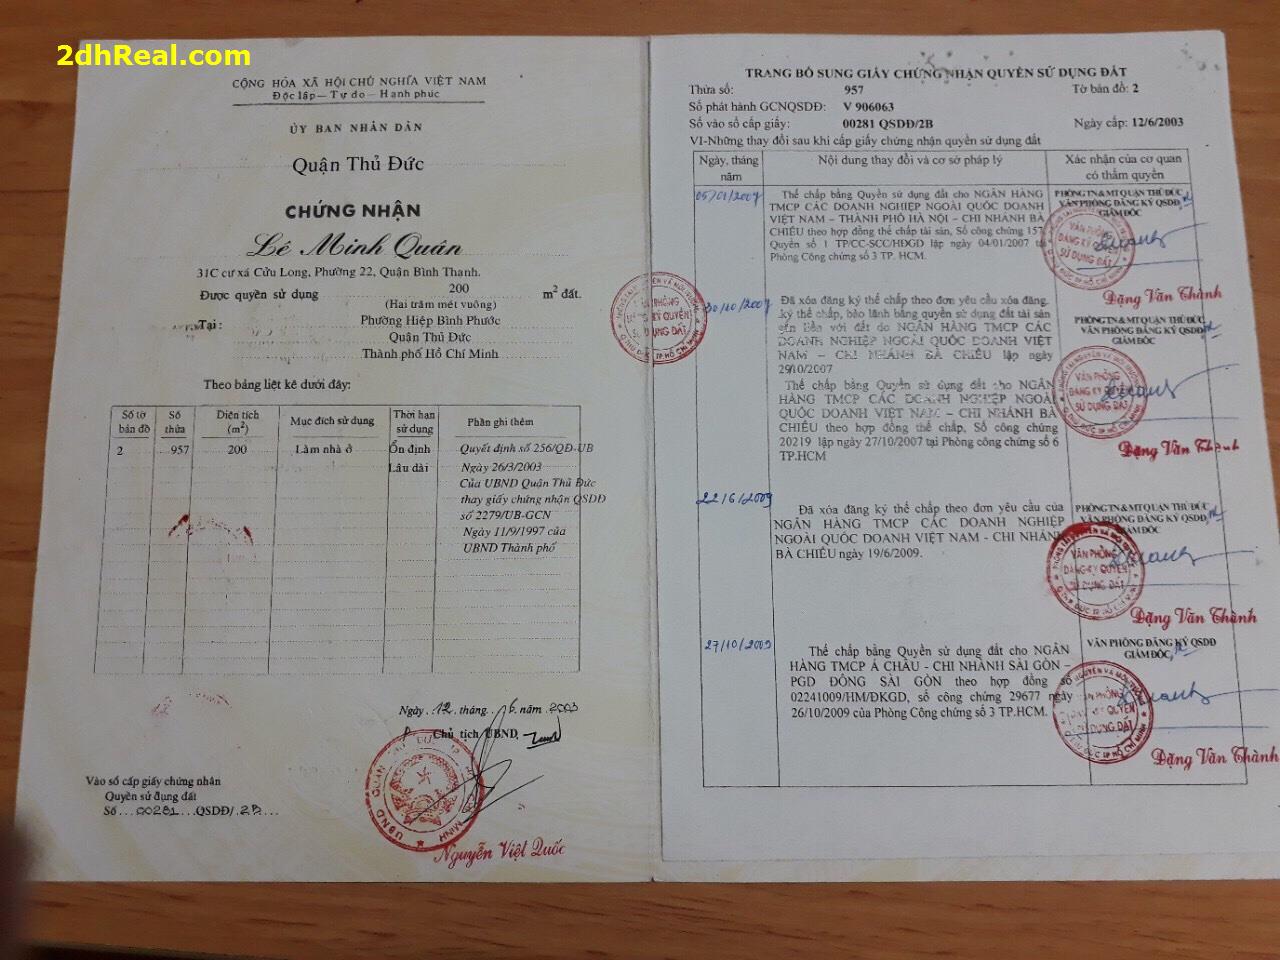 2dhReal.com
CỘNG HÒA XÃ HỘI CHỦ NGHĨA VIỆT NAM
Độc lập – Tự do – Hạnh phúc
ỦY BAN NHÂN DÂN
Quận Thủ Đức
CHỨNG NHẬN
Lê Minh Quân
31C cư xá Cửu Long, Phường 22, Quận Bình Thạnh.
Được quyền sử dụng 200 m² đất.
(Hai trăm mét vuông)
Tại: Phường Hiệp Bình Phước
Quận Thủ Đức
Thành phố Hồ Chí Minh
Theo bảng liệt kê dưới đây:
Số tờ bản đồ Số thửa Diện tích (m²) Mục đích sử dụng Thời hạn sử dụng Phần ghi thêm
2 957 200 Làm nhà ở Ổn định Quyết định số 256/QĐ-UB
Lâu dài Ngày 26/3/2003
Của UBND Quận Thủ Đức
thay giấy chứng nhận QSDĐ
số 2279/UB-GCN
Ngày 11/9/1997 của
UBND Thành phố
Ngày 12 tháng 6 năm 2003
Chủ tịch UBND
Nguyễn Việt Quốc
Vào sổ cấp giấy chứng nhận
Quyền sử dụng đất
Số 00281 QSDĐ/ 2B
TRANG BỔ SUNG GIẤY CHỨNG NHẬN QUYỀN SỬ DỤNG ĐẤT
Thửa số: 957 Tờ bản đồ: 2
Số phát hành GCNQSDĐ: V 906063
Số vào sổ cấp giấy: 00281 QSDĐ/2B Ngày cấp: 12/6/2003
VI-Những thay đổi sau khi cấp giấy chứng nhận quyền sử dụng đất
Ngày, tháng năm Nội dung thay đổi và cơ sở pháp lý Xác nhận của cơ quan có thẩm quyền
05/01/2007 Thế chấp bằng Quyền sử dụng đất cho NGÂN HÀNG
TMCP CÁC DOANH NGHIỆP NGOÀI QUỐC DOANH
VIỆT NAM – THÀNH PHỐ HÀ NỘI – CHI NHÁNH BÀ
CHIỂU theo hợp đồng thế chấp tài sản, Số công chứng 157
Quyển số 1 TP/CC-SCC/HĐGD lập ngày 04/01/2007 tại
Phòng Công chứng số 3 TP. HCM
PHÒNG TN & MT QUẬN THỦ ĐỨC
VĂN PHÒNG ĐĂNG KÝ QSDĐ
GIÁM ĐỐC
VĂN PHÒNG
ĐĂNG KÝ QUYỀN
SỬ DỤNG ĐẤT
Đặng Văn Thành
30/10/2007 Đã xóa đăng ký thế chấp theo đơn yêu cầu xóa đăng
ký thế chấp, bảo lãnh bằng quyền sử dụng đất tài sản
gắn liền với đất do NGÂN HÀNG TMCP CÁC
DOANH NGHIỆP NGOÀI QUỐC DOANH VIỆT
NAM – CHI NHÁNH BÀ CHIỂU lập ngày
29/10/2007
Thế chấp bằng Quyền sử dụng đất cho NGÂN
HÀNG TMCP CÁC DOANH NGHIỆP NGOÀI
QUỐC DOANH VIỆT NAM – CHI NHÁNH BÀ
CHIỂU theo hợp đồng thế chấp, Số công chứng
20219 lập ngày 27/10/2007 tại Phòng công chứng số 6
TP.HCM
PHÒNG TN & MT QUẬN THỦ ĐỨC
VĂN PHÒNG ĐĂNG KÝ QSDĐ
GIÁM ĐỐC
VĂN PHÒNG
ĐĂNG KÝ QUYỀN
SỬ DỤNG ĐẤT
Đặng Văn Thành
22/6/2009 Đã xóa đăng ký thế chấp theo đơn yêu cầu của
NGÂN HÀNG TMCP CÁC DOANH NGHIỆP
NGOÀI QUỐC DOANH VIỆT NAM - CHI NHÁNH
BÀ CHIỂU ngày 19/6/2009.
PHÒNG TN & MT QUẬN THỦ ĐỨC
VĂN PHÒNG ĐĂNG KÝ QSDĐ
GIÁM ĐỐC
VĂN PHÒNG
ĐĂNG KÝ QUYỀN
SỬ DỤNG ĐẤT
Đặng Văn Thành
27/10/2009 Thế chấp bằng Quyền sử dụng đất cho NGÂN
HÀNG TMCP Á CHÂU - CHI NHÁNH SÀI GÒN –
PGD ĐÔNG SÀI GÒN theo hợp đồng số
02241009/HM/ĐKGD, số công chứng 29677 ngày
26/10/2009 của Phòng Công chứng số 3 TP.HCM.
VĂN PHÒNG ĐĂNG KÝ QSDĐ
GIÁM ĐỐC
VĂN PHÒNG
ĐĂNG KÝ QUYỀN
SỬ DỤNG ĐẤT
Đặng Văn Thành